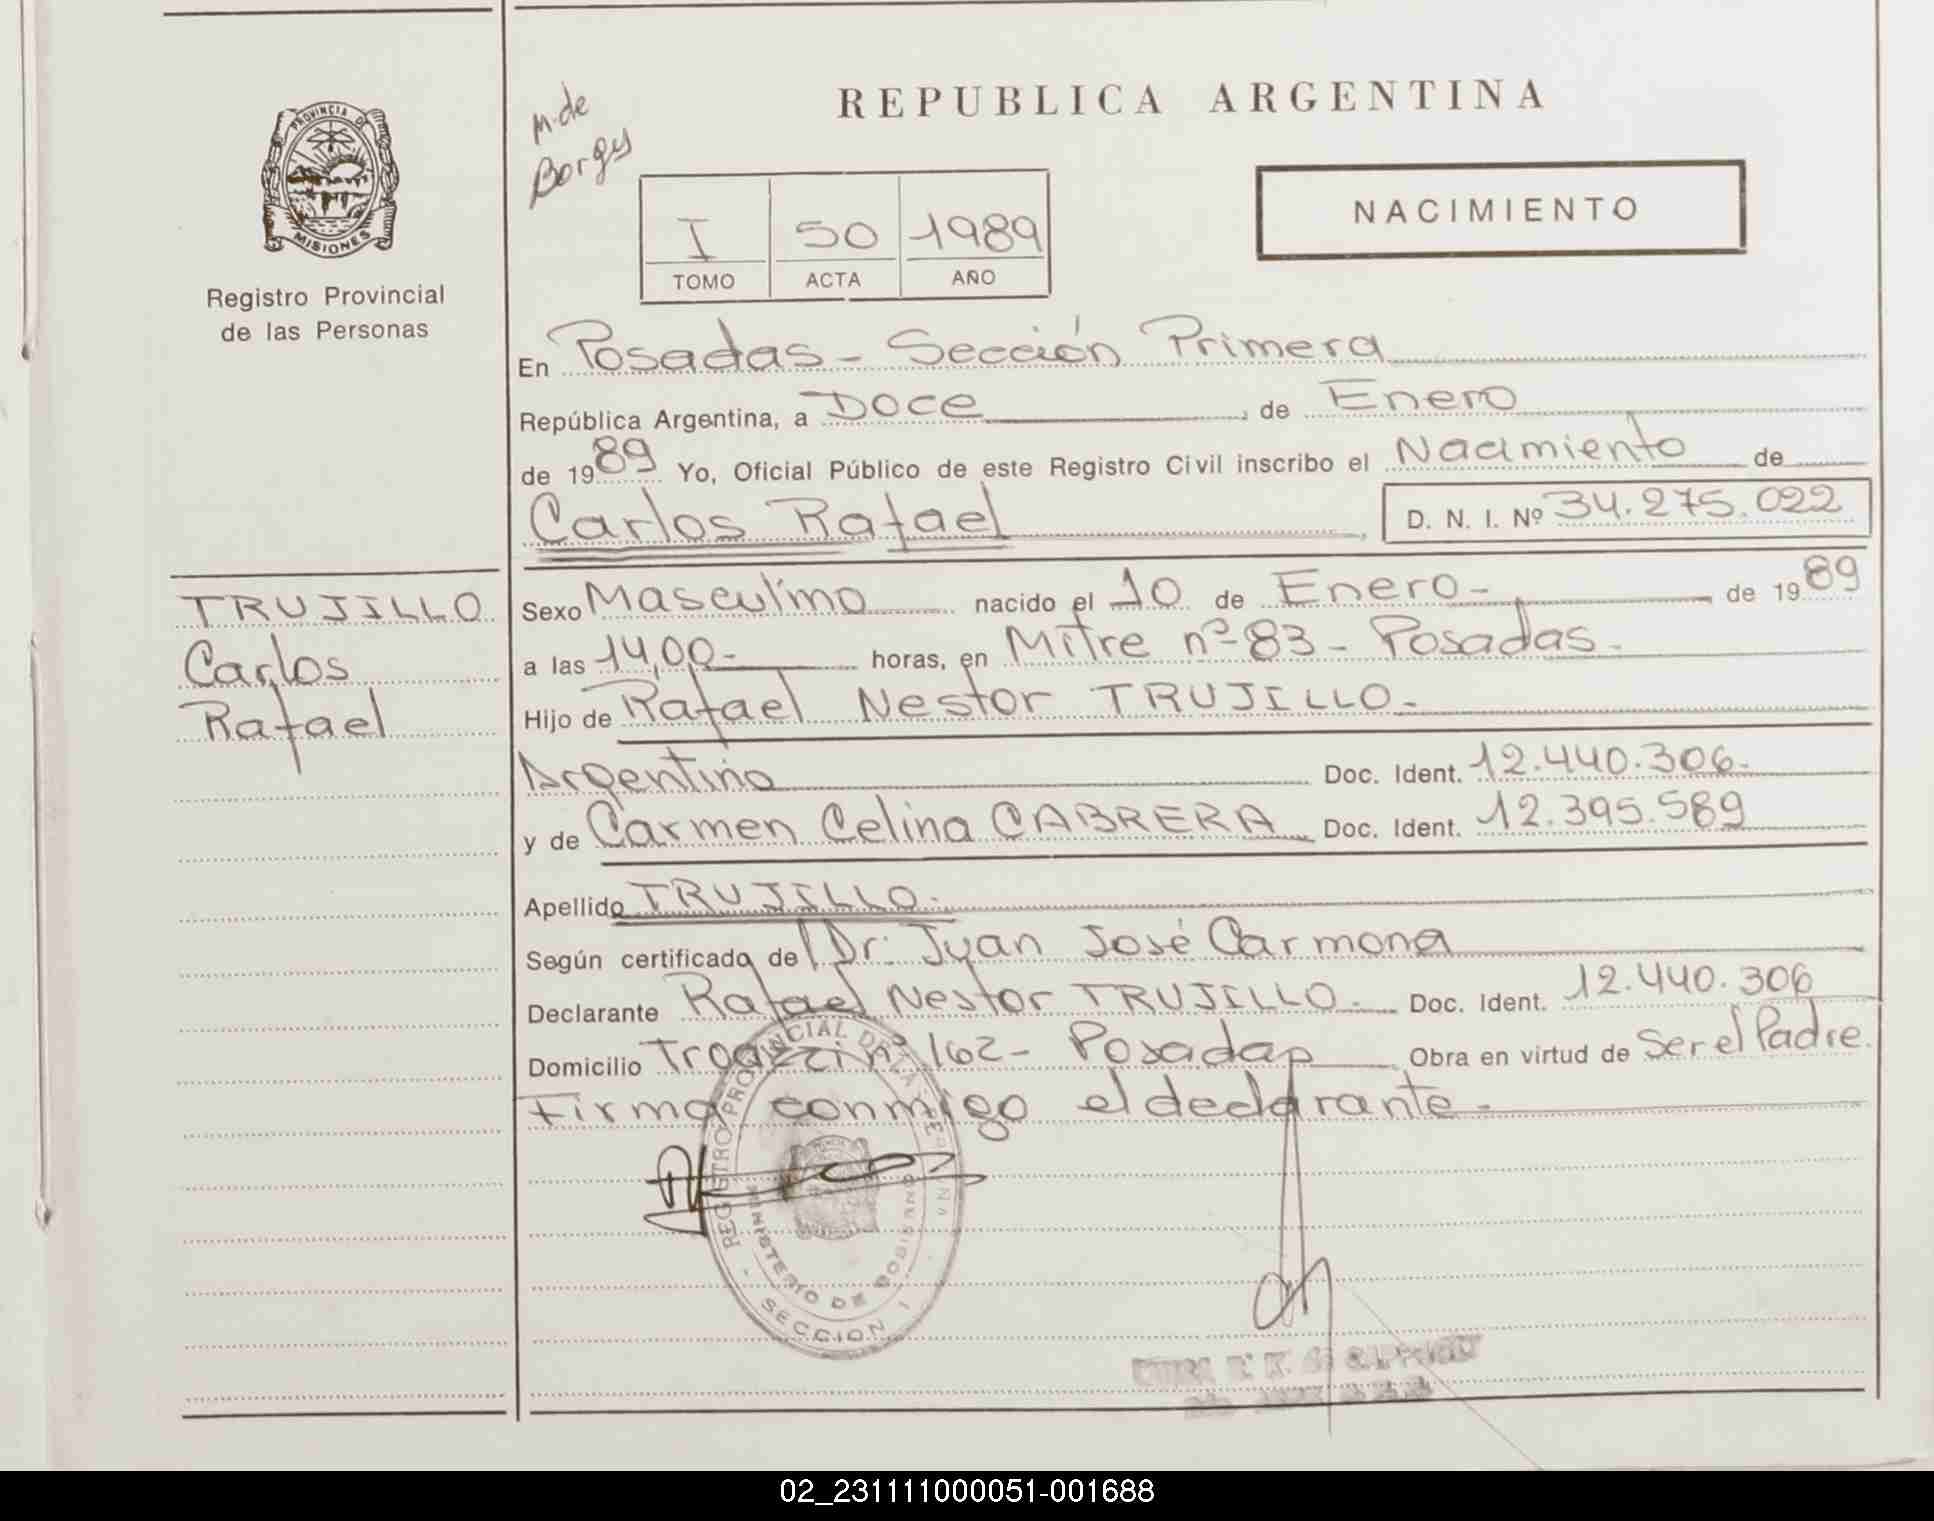 PROVINCIA DE
MISIONES
Registro Provincial
de las Personas
TRUJILLO
Carlos
Rafael
M. de
Borges
REPUBLICA ARGENTINA
NACIMIENTO
I 50 1989
TOMO ACTA AÑO
En Posadas - Sección Primera
República Argentina, a Doce, de Enero
de 1989 Yo, Oficial Público de este Registro Civil inscribo el Nacimiento de
Carlos Rafael, D. N. I. Nº 34.275.022
Sexo Masculino nacido el 10 de Enero - de 1989
a las 14,00 - horas, en Mitre nº 83 - Posadas -
Hijo de Rafael Nestor TRUJILLO -
Argentino Doc. Ident. 12.440.306 -
y de Carmen Celina CABRERA Doc. Ident. 12.395.589
Apellido TRUJILLO -
Según certificado de Dr: Juan José Carmona
Declarante Rafael Nestor TRUJILLO - Doc. Ident. 12.440.306
Domicilio nº 162 - Posadas Obra en virtud de Ser el Padre.
Firma conmigo el declarante -
REGISTRO PROVINCIAL DE LA
MINISTERIO DE GOBIERNO
SECCION 1
02_231111000051-001688